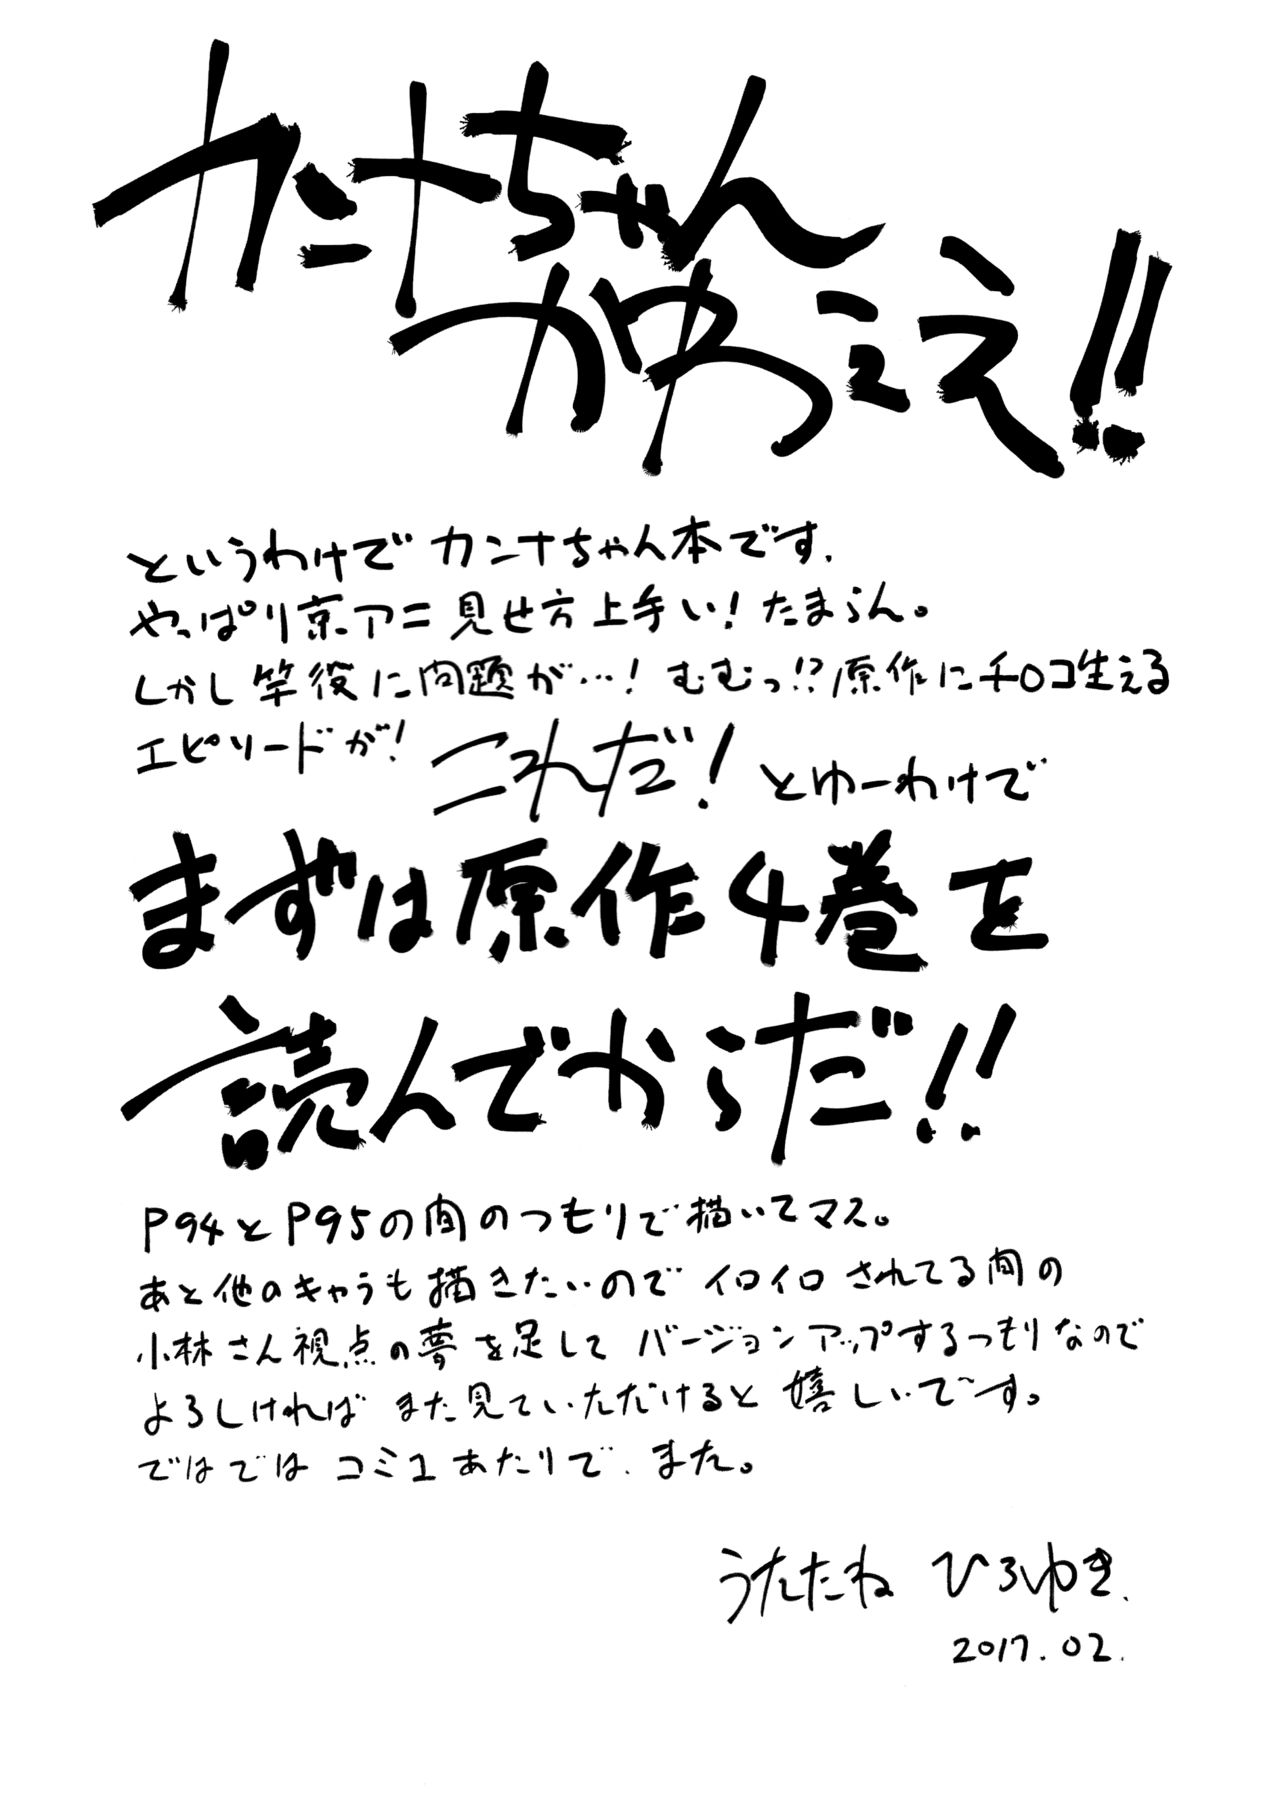 カンナちゃん
かゎぇぇ!!
というわけで カンナちゃん本です.
やっぱり京アニ 見せ方上手い! たまらん。
しかし 竿役に問題が…! むむっ!?原作にチ○コ生える
エピソードが! これだ! とゆーわけで
まずは原作4巻を
読んでからだ!!
P94とP95の間のつもりで描いてマス。
あと他のキャラも描きたいので イロイロされてる間の
小林さん視点の夢を足して バージョンアップするつもりなので
よろしければ また見ていただけると 嬉しいで~す。
ではでは コミ1あたりで. また。
うたたね ひろゆき.
2017.02.